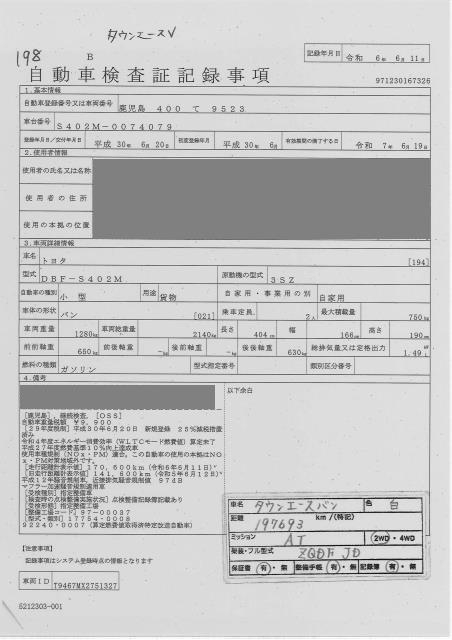 タウンエースV
198
B
記録年月日 令和 6年 6月 11日
自動車検査証記録事項
971230167326
1.基本情報
自動車登録番号又は車両番号 鹿児島 400 て 9523
車台番号 S402M-0074079
登録年月日/交付年月日 平成 30年 6月 20日 初度登録年月 平成 30年 6月 有効期間の満了する日 令和 7年 6月 19日
2.使用者情報
使用者の氏名又は名称
使用者の住所
使用の本拠の位置
3.車両詳細情報
車名 トヨタ [194]
型式 DBF-S402M 原動機の型式 3SZ
自動車の種別 小型 用途 貨物 自家用・事業用の別 自家用
車体の形状 バン [021] 乗車定員 2人 最大積載量 750kg
車両重量 1280kg 車両総重量 2140kg 長さ 404cm 幅 166cm 高さ 190cm
前前軸重 650kg 前後軸重 -kg 後前軸重 -kg 後後軸重 630kg 総排気量又は定格出力 1.49
燃料の種類 ガソリン 型式指定番号 類別区分番号
4.備考
以下余白
[鹿児島],継続検査,[OSS]
自動車重量税額 ¥9,900
[29年度税制]平成30年6月20日 新規登録 25%減税措置
済み
令和4年度エネルギー消費効率(WLTCモード燃費値)算定未了
平成27年度燃費基準10%向上達成車
使用車種規制(NOx・PM)適合。この自動車の使用の本拠はNO
x・PM対策地域外です。
[走行距離計表示値]170,600km(令和6年6月11日)
[旧走行距離計表示値]141,600km(令和5年6月12日)
平成12年騒音規制車,近接排気騒音規制値 97dB
マフラー加速騒音規制適用車
[受検種別]指定整備車
[検査時の点検整備実施状況]点検整備記録簿記載あり
[受検形態]指定整備工場
[整備工場コード]97-00037
[型式・類別]17754-0008
92240-0007(算定燃費値取得済特定改造自動車)
車名 タウンエースバン 色 白
距離 197693 km/(特記)
ミッション AT 2WD・4WD
架装・フル型式 ZQDF JD
保証書 有・無 整備手帳 有・無 記録簿 有・無
【注意事項】
記録事項はシステム登録時点の情報となります
車両ID T9467MX2751327
5212303-001